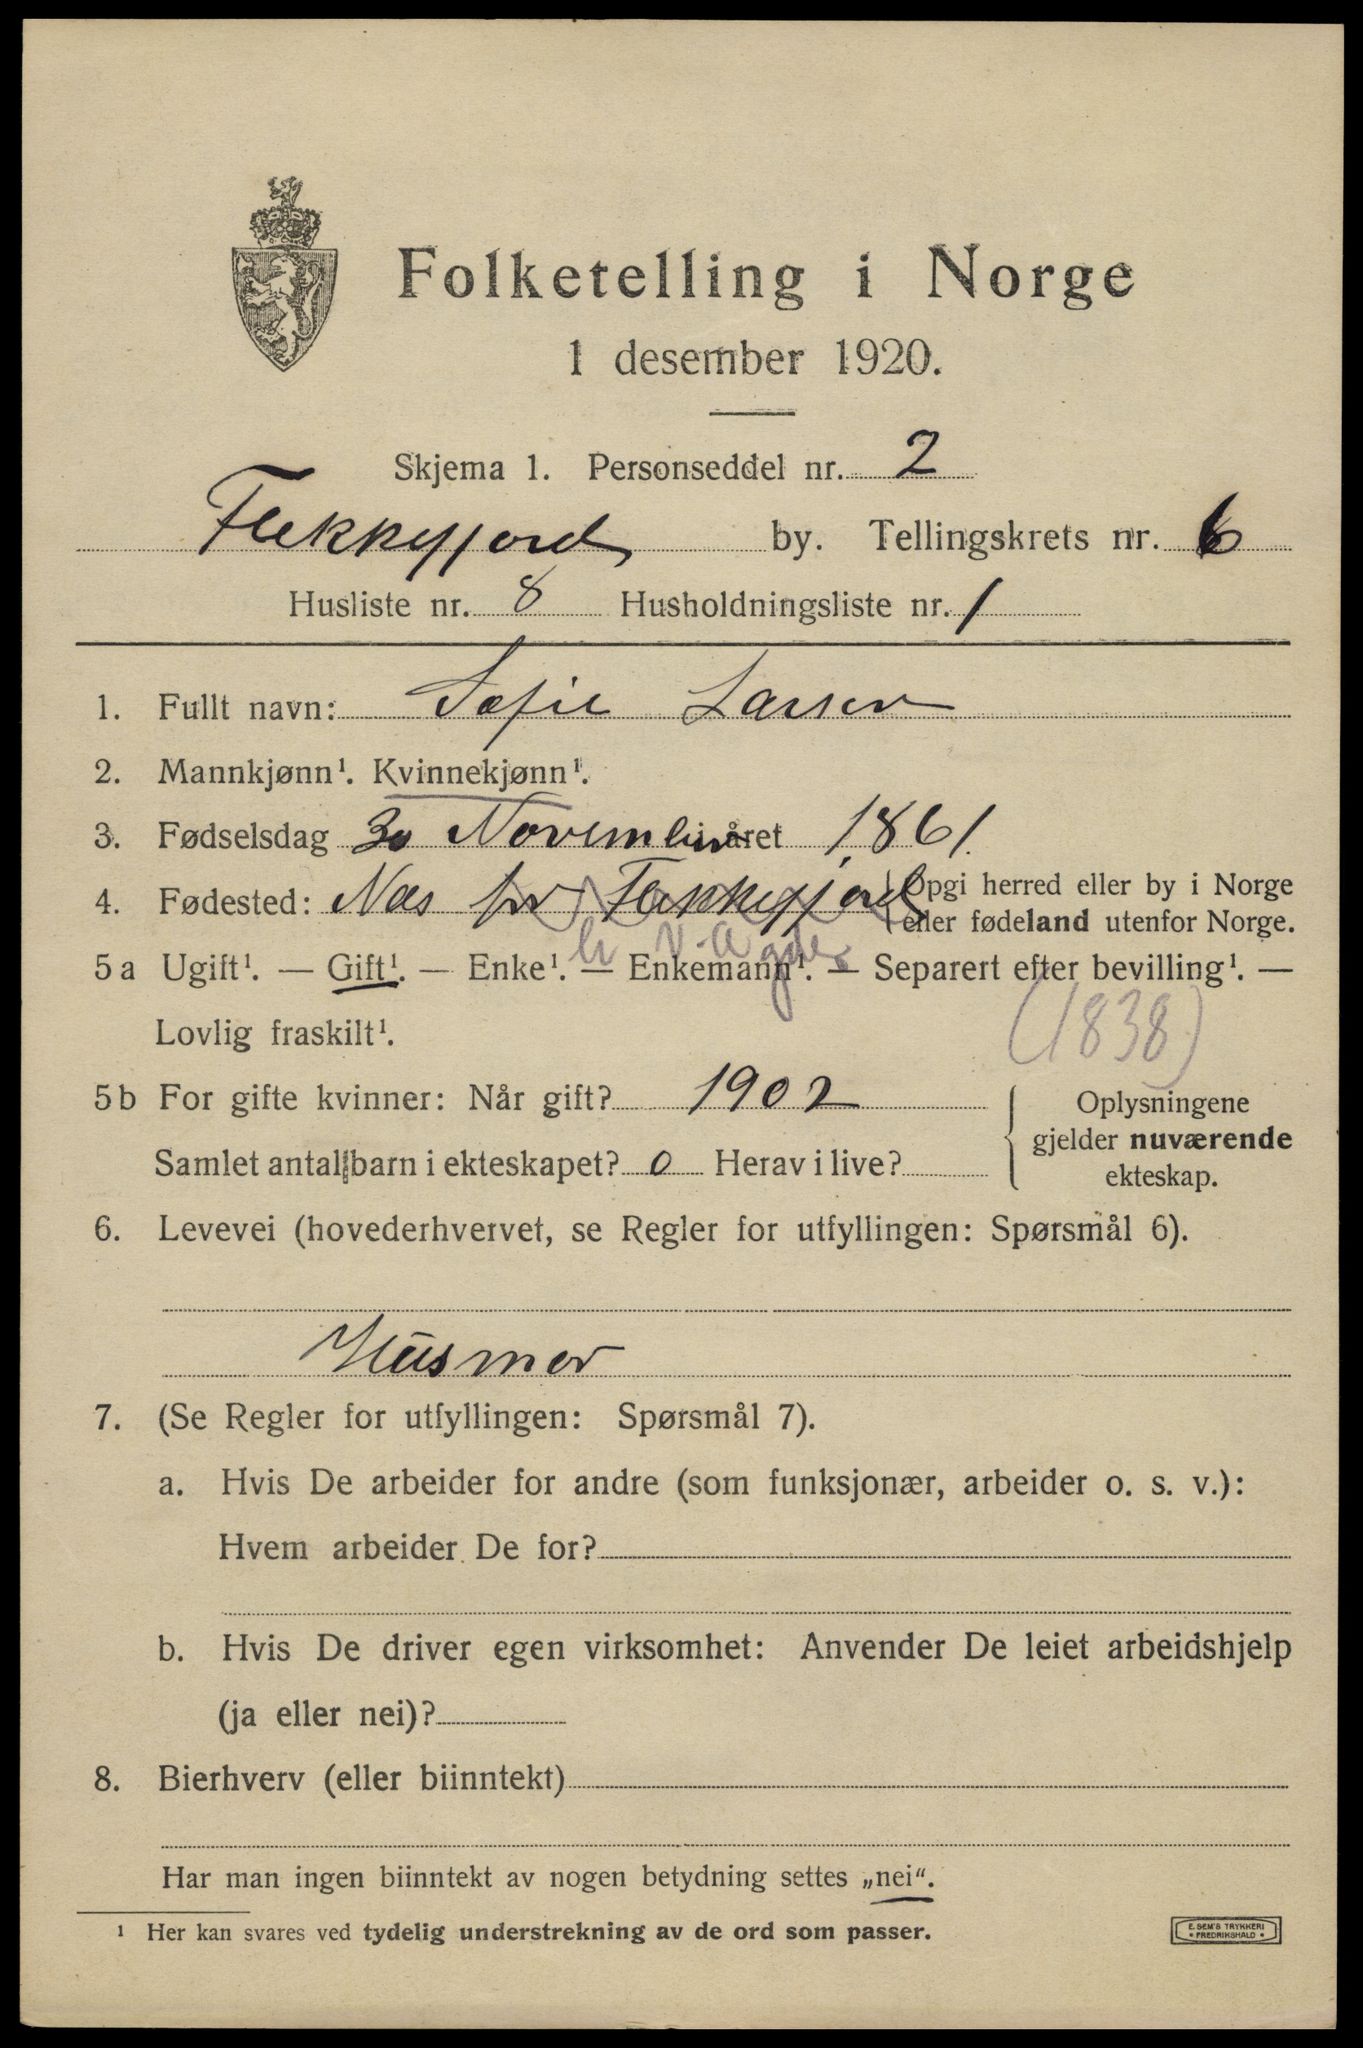 Folketelling i Norge
1 desember 1920.
Skjema 1. Personseddel nr. 2
Flekkefjord by. Tellingskrets nr. 6
Husliste nr. 8 Husholdningsliste nr. 1
1. Fullt navn: Sofie Larsen
2. Mannkjønn¹. Kvinnekjønn¹.
3. Fødselsdag 30 November året 1861.
4. Fødested: Næs pr Flekkefjord { Opgi herred eller by i Norge
eller fødeland utenfor Norge.
h V-Agder
5 a Ugift¹. — Gift¹. — Enke¹. — Enkemann¹. — Separert efter bevilling¹. —
Lovlig fraskilt¹.
(1838)
5 b For gifte kvinner: Når gift? 1902
Samlet antal barn i ekteskapet? 0 Herav i live?
Oplysningene
gjelder nuværende
ekteskap.
6. Levevei (hovederhvervet, se Regler for utfyllingen: Spørsmål 6).
Husmor
7. (Se Regler for utfyllingen: Spørsmål 7).
a. Hvis De arbeider for andre (som funksjonær, arbeider o. s. v.):
Hvem arbeider De for?
b. Hvis De driver egen virksomhet: Anvender De leiet arbeidshjelp
(ja eller nei)?
8. Bierhverv (eller biinntekt)
Har man ingen biinntekt av nogen betydning settes „nei“.
¹ Her kan svares ved tydelig understrekning av de ord som passer.
E. SEM'S TRYKKERI
• FREDRIKSHALD •